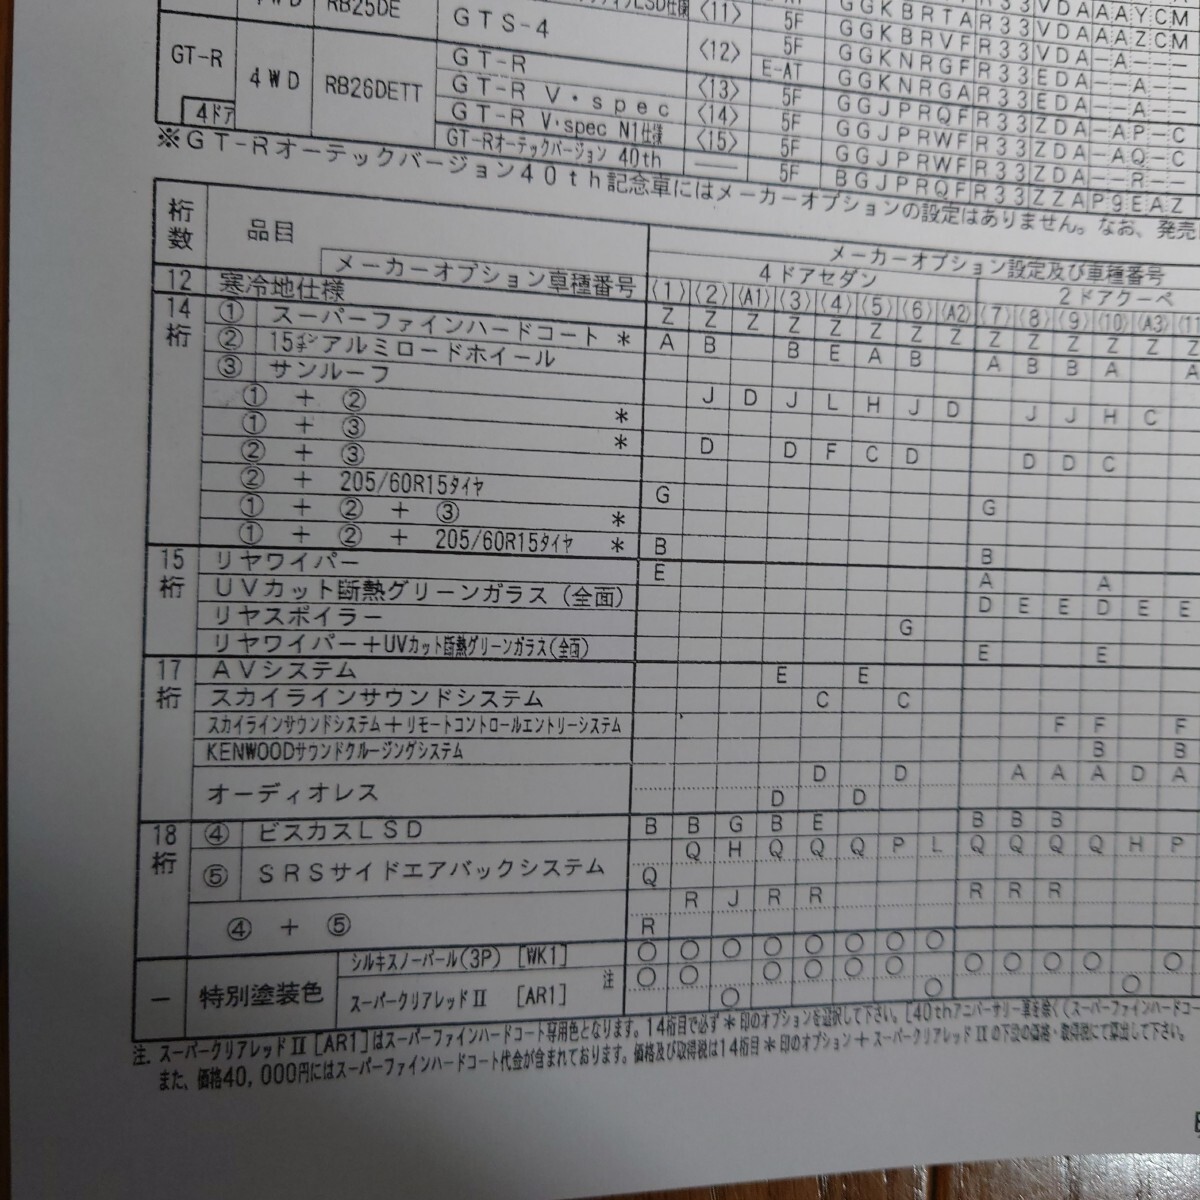 4WD RB25DE
GTS-4 〈11〉 5F GGKBRTAR33VDAAAYCM
5F GGKBRVFR33VDAAAZCM
GT-R 4WD RB26DETT
GT-R 〈12〉 5F
E-AT
GT-R V・spec 〈13〉 5F
GT-R V・spec N1仕様 〈14〉 5F
4ドア GT-Rオーテックバージョン 40th 〈15〉 5F
—— 5F BGJPRQFR33ZZAP9EAZ
※GT-Rオーテックバージョン40th記念車にはメーカーオプションの設定はありません。なお、発売
桁数 品目 メーカーオプション設定及び車種番号
4ドアセダン 2ドアクーペ
メーカーオプション車種番号 〈1〉 〈2〉 〈A1〉 〈3〉 〈4〉 〈5〉 〈6〉 〈A2〉 〈7〉 〈8〉 〈9〉 〈10〉 〈A3〉 〈11
12 寒冷地仕様 Z Z Z Z Z Z Z Z Z Z Z Z Z Z
14桁 ① スーパーファインハードコート * A B B E A B A B B A A
② 15インチアルミロードホイール
③ サンルーフ J D J L H J D J J H C
① + ② *
① + ③ * D D F C D D D C
② + ③
② + 205/60R15タイヤ G G
① + ② + ③ *
① + ② + 205/60R15タイヤ * B B
15桁 リヤワイパー E A A
UVカット断熱グリーンガラス(全面) D E E D E E
リヤスポイラー G
リヤワイパー+UVカット断熱グリーンガラス(全面) E E
17桁 AVシステム E E
スカイラインサウンドシステム C C
スカイラインサウンドシステム+リモートコントロールエントリーシステム F F F
KENWOODサウンドクルージングシステム B B
オーディオレス D D A A A D A
D D
18桁 ④ ビスカスLSD B B G B E B B B
⑤ SRSサイドエアバックシステム Q H Q Q Q P L Q Q Q Q H P
Q
④ + ⑤ R J R R R R R
R
— 特別塗装色 シルキスノーパール(3P) [WK1] ○ ○ ○ ○ ○ ○ ○ ○
スーパークリアレッドⅡ [AR1] 注 ○ ○ ○ ○ ○ ○ ○ ○ ○ ○ ○
○ ○ ○
注. スーパークリアレッドⅡ[AR1]はスーパーファインハードコート専用色となります。14桁目で必ず*印のオプションを選択して下さい。[40thアニバーサリー車を除く(スーパーファインハードコー
また、価格40,000円にはスーパーファインハードコート代金が含まれております。価格及び取得税は14桁目*印のオプション+スーパークリアレッドⅡの下段の価格・取得税にて算出して下さい。